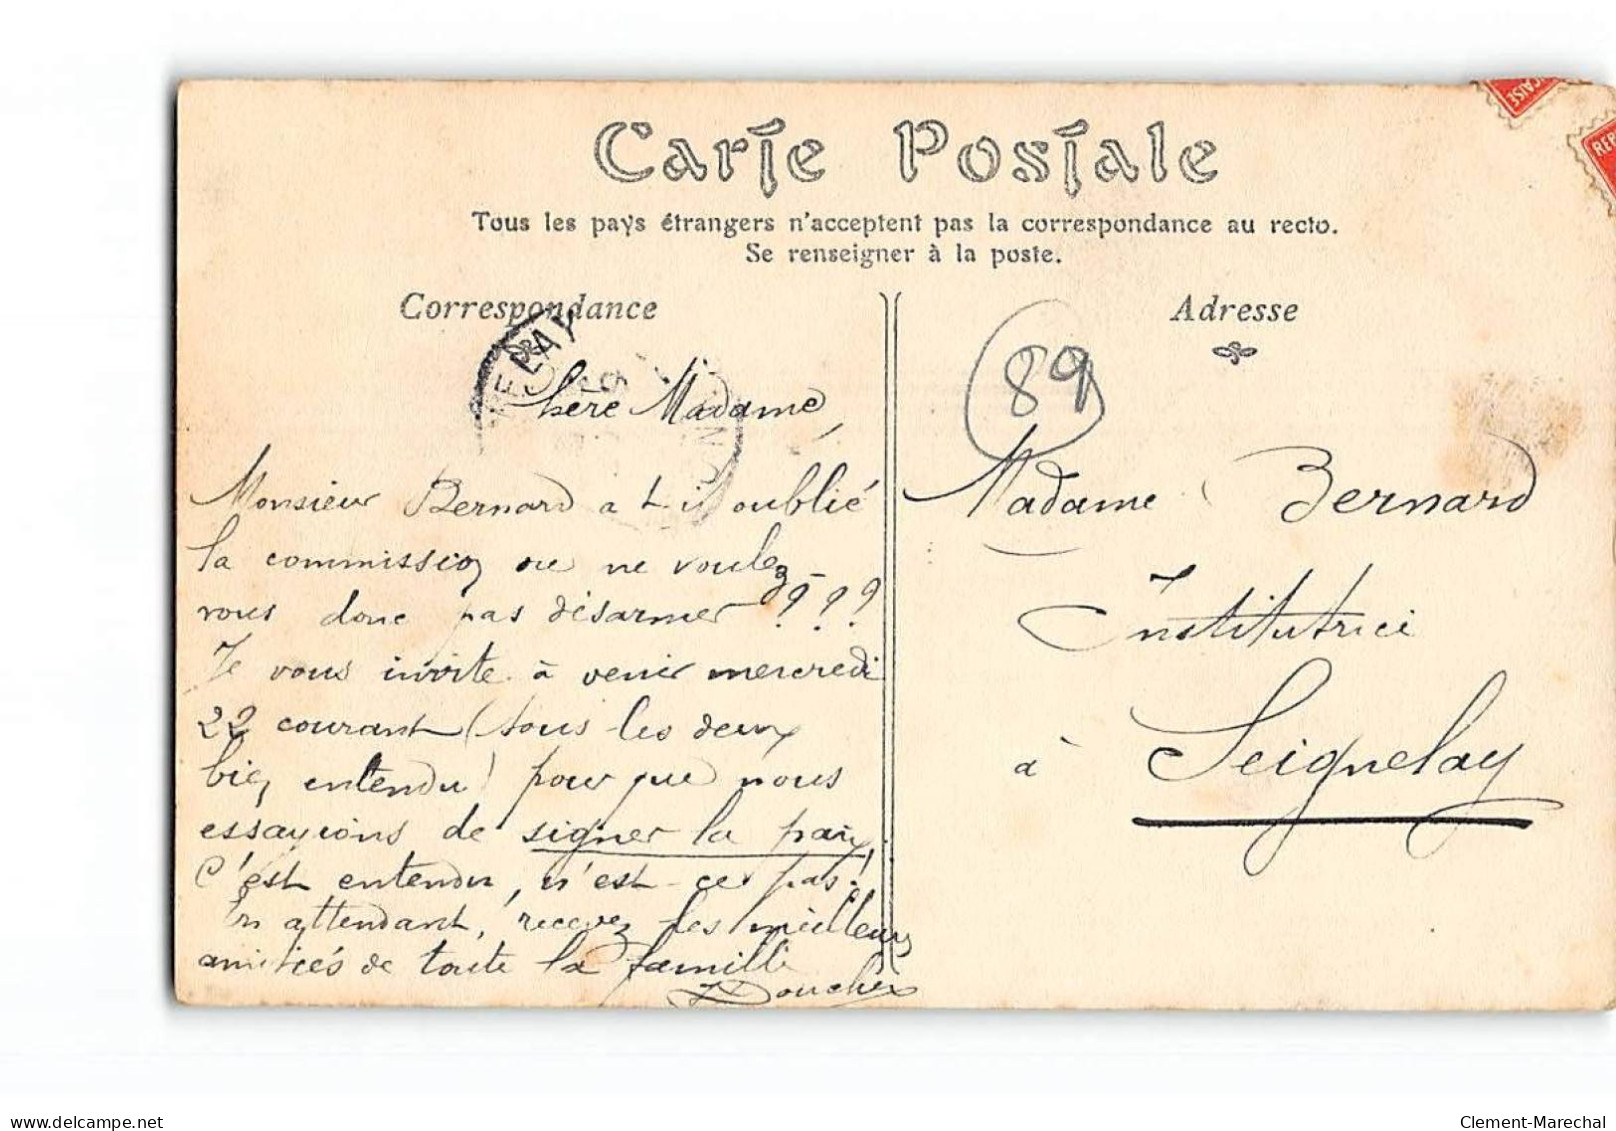 Carte Postale
Tous les pays étrangers n'acceptent pas la correspondance au recto.
Se renseigner à la poste.
Correspondance
Chère Madame,
Monsieur Bernard a t il oublié
la commission ou ne voulez-
vous donc pas désarmer ???
Je vous invite à venir mercredi
22 courant (tous les deux
bien entendu) pour que nous
essayions de signer la paix,
C'est entendu, n'est-ce pas!
En attendant, recevez les meilleurs
amitiés de toute la famille
Adresse
89
Madame Bernard
Institutrice
à Seignelay
ÇAISE
REP
ELAY
delcampe.net
Clement-Marechal